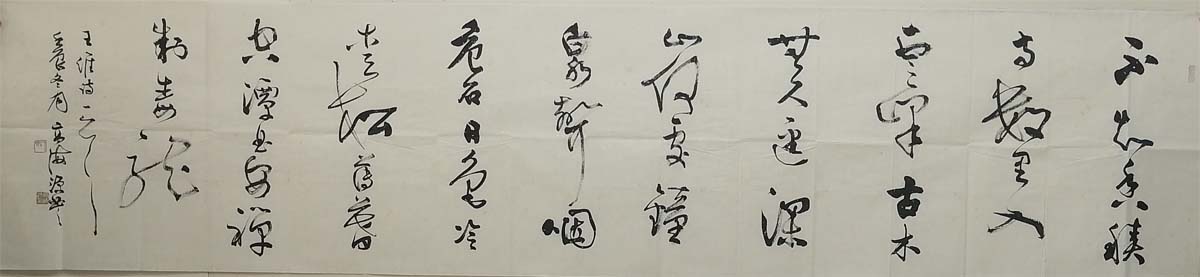 不知香積
寺數里入
雲峰古木
無人逕深
山何處鐘
泉聲咽
危石日色冷
青松薄暮
空潭曲安禪
制毒龍
王維詩一首
壬辰冬月高海源書